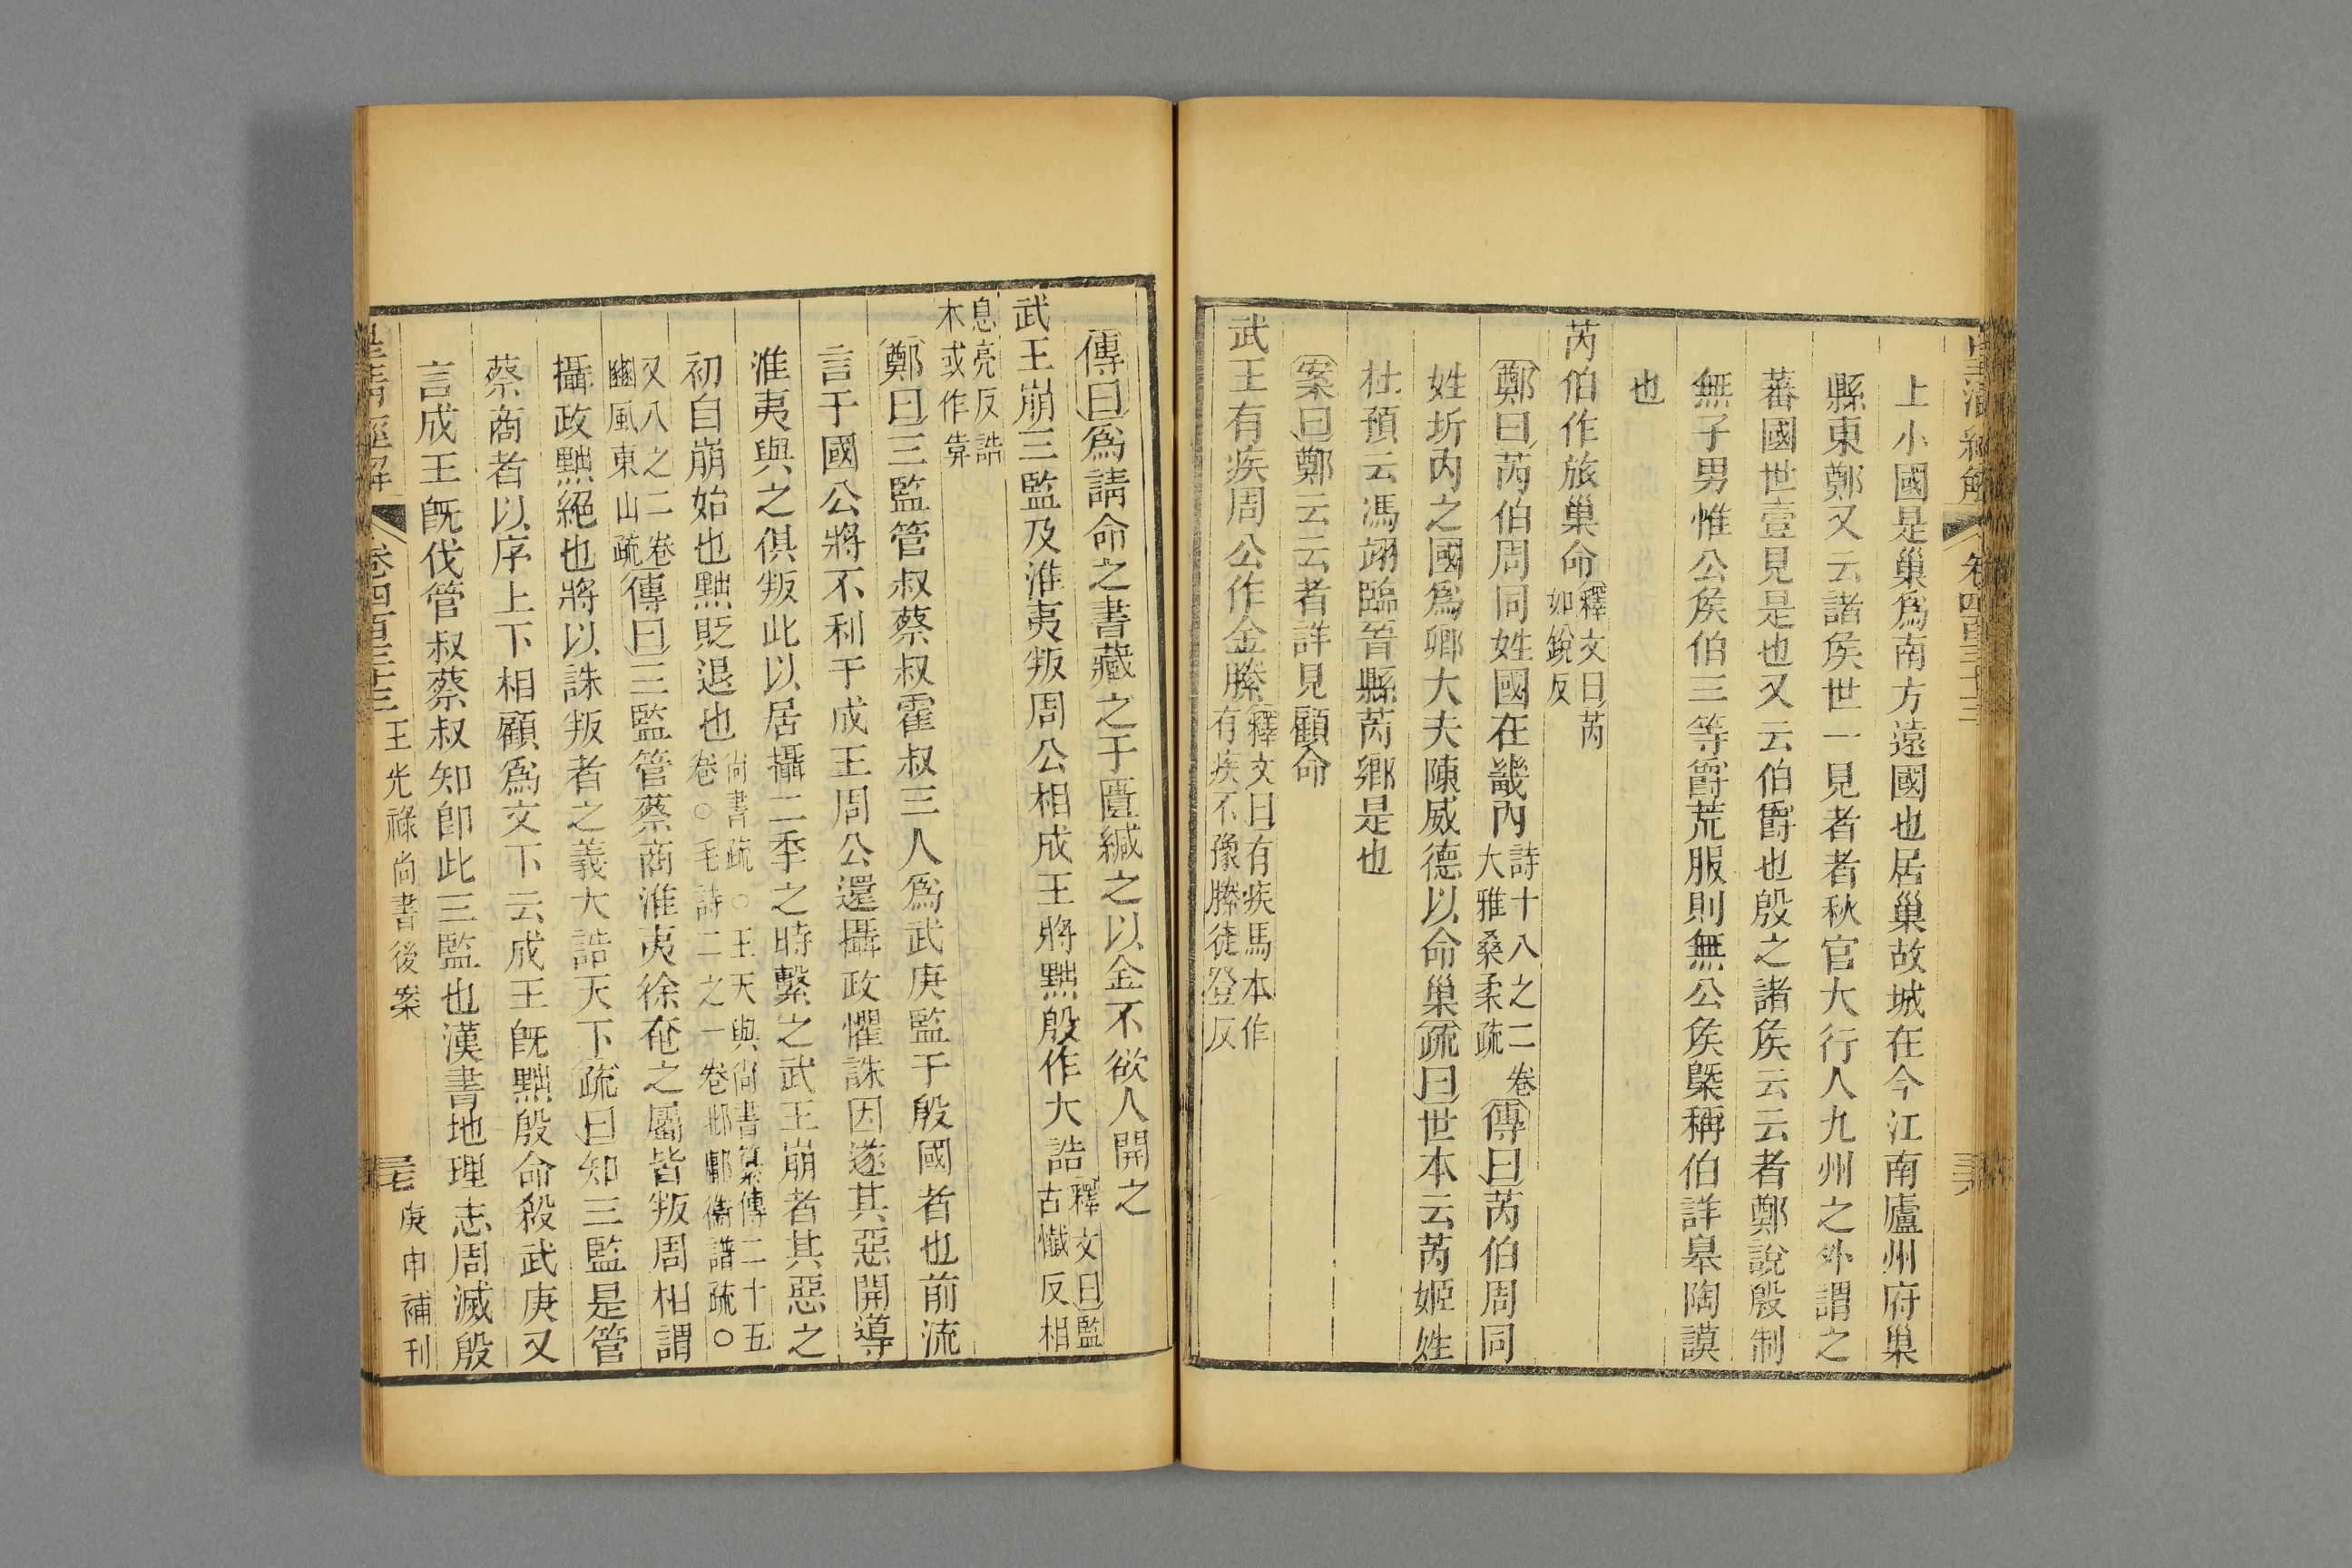 皇清經解
卷四百三十三
上小國是巢爲南方遠國也居巢故城在今江南廬州府巢
縣東鄭又云諸矦世一見者者秋官大行人九州之外謂之
蕃國世壹見是也又云伯爵也殷之諸矦云云者鄭說殷制
無子男惟公矦伯三等爵荒服則無公矦槩稱伯詳皋陶謨
也
芮伯作旅巢命釋文曰芮
如銳反
鄭曰芮伯周同姓國在畿內詩十八之二卷
大雅桑柔疏
傳曰芮伯周同
姓圻內之國爲卿大夫陳威德以命巢疏曰世本云芮姬姓
杜預云馮翊臨晉縣芮鄉是也
案曰鄭云云者詳見顧命
武王有疾周公作金縢釋文曰有疾馬本作
有疾不豫縢徒登反
傳曰爲請命之書藏之于匱緘之以金不欲人開之
武王崩三監及淮夷叛周公相成王將黜殷作大誥釋文曰監
古懺反相
息亮反誥
本或作𢍎
鄭曰三監管叔蔡叔霍叔三人爲武庚監于殷國者也前流
言于國公將不利于成王周公還攝政懼誅因遂其惡開導
淮夷與之俱叛此以居攝二季之時繫之武王崩者其惡之
初自崩始也黜貶退也尙書疏○王天與尙書纂傳二十五
卷○毛詩二之一卷邶鄘衞譜疏○
又八之二卷
豳風東山疏
傳曰三監管蔡商淮夷徐奄之屬皆叛周相謂
攝政黜絕也將以誅叛者之義大誥天下疏曰知三監是管
蔡商者以序上下相顧爲文下云成王旣黜殷命殺武庚又
言成王旣伐管叔蔡叔知卽此三監也漢書地理志周滅殷
皇清經解
卷四百三十三
王光祿尙書後案
庚申補刊